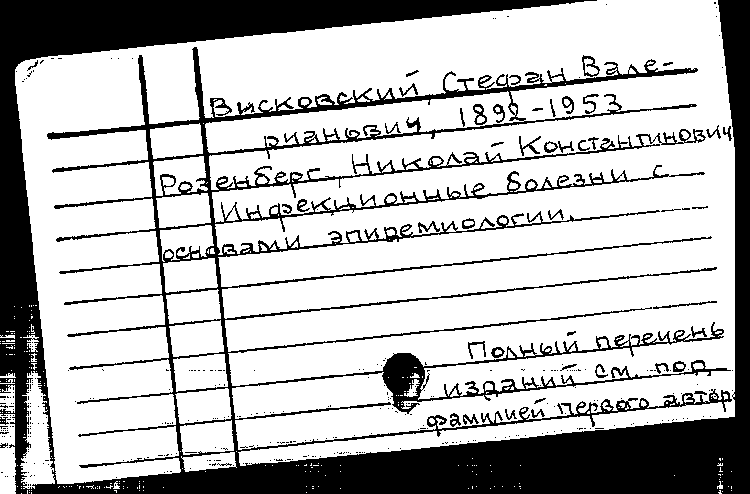 Висковский, Стефан Вале-
рианович, 1892-1953
Розенберг, Николай Константинович
Инфекционные болезни с
основами эпидемиологии.
Полный перечень
изданий см. под
фамилией первого автор